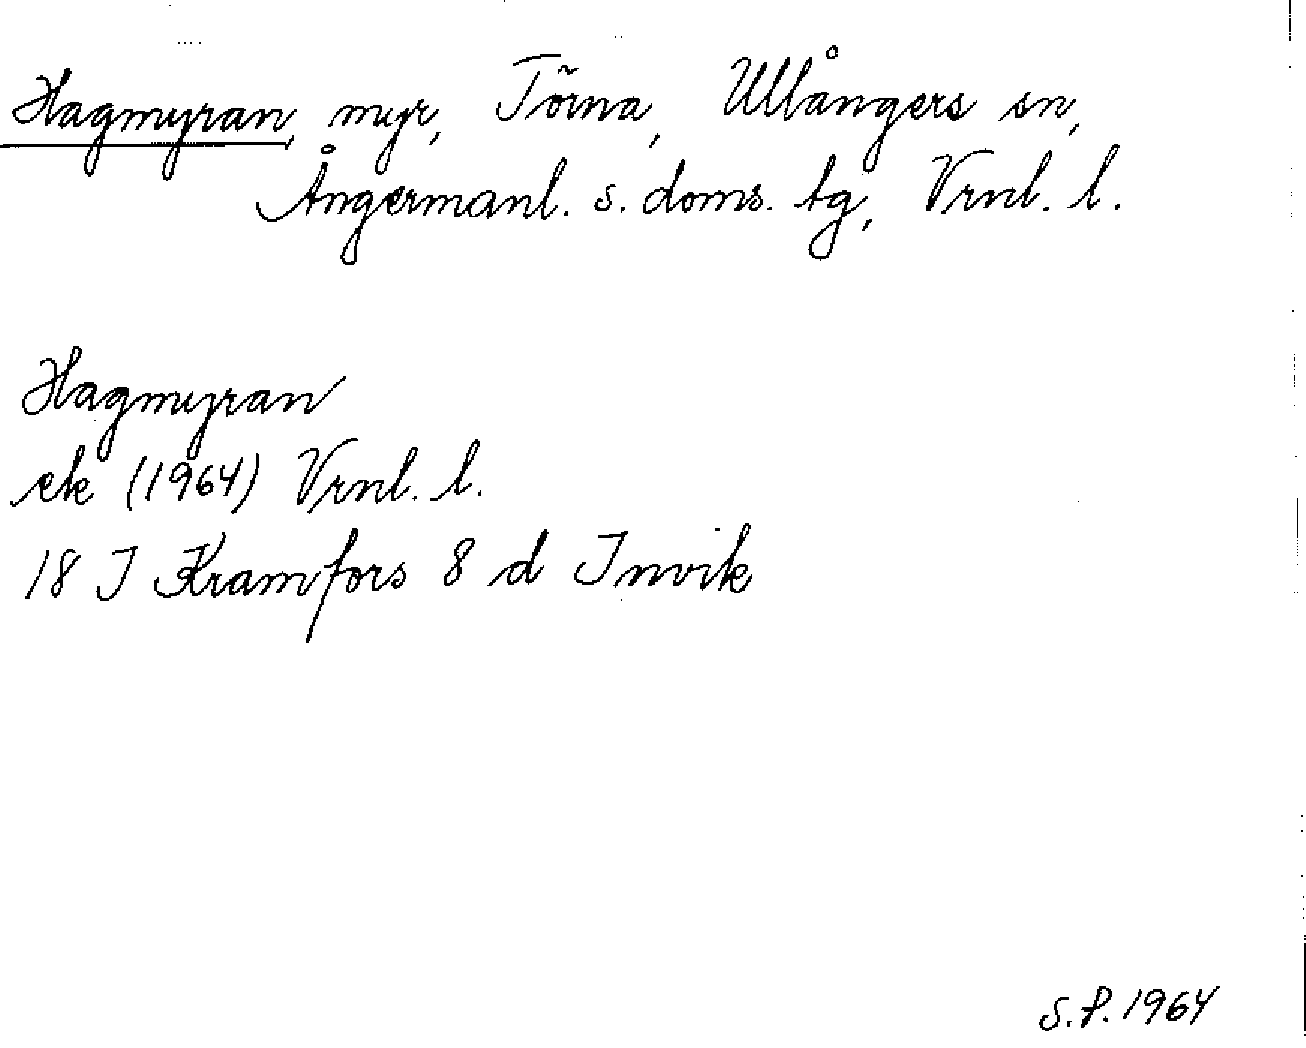 Hagmyran, myr, Törna, Ullångers sn,
Ångermanl. s. doms. tg, Vrnl. l.
Hagmyran
ek (1964) Vrnl. l.
18 I Kramfors 8 d Invik
S.P. 1964